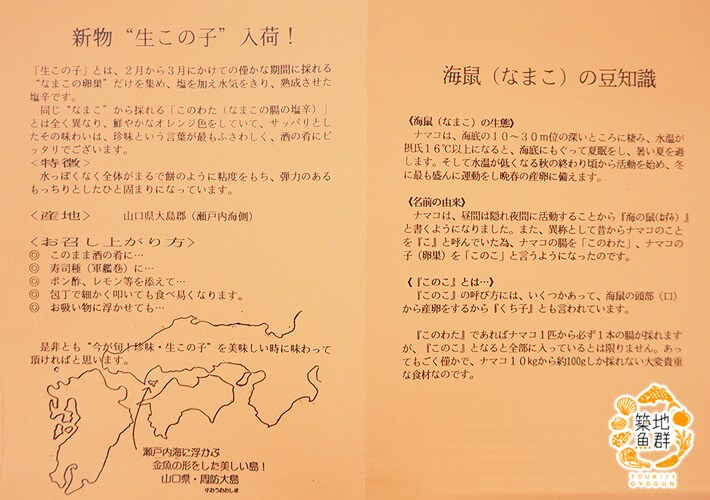 新物“生この子”入荷！
「生この子」とは、２月から３月にかけての僅かな期間に採れる
“なまこの卵巣”だけを集め、塩を加え水気をきり、熟成させた
塩辛です。
同じ“なまこ”から採れる「このわた（なまこの腸の塩辛）」
とは全く異なり、鮮やかなオレンジ色をしていて、サッパリとし
たその味わいは、珍味という言葉が最もふさわしく、酒の肴にピ
ッタリでございます。
＜特徴＞
水っぽくなく全体がまるで餅のように粘度をもち、弾力のある
もっちりとしたひと固まりになっています。
＜産地＞　山口県大島郡（瀬戸内海側）
＜お召し上がり方＞
◎　このまま酒の肴に…
◎　寿司種（軍艦巻）に…
◎　ポン酢、レモン等を添えて…
◎　包丁で細かく叩いても食べ易くなります。
◎　お吸い物に浮かせても…
是非とも“今が旬！珍味・生この子”を美味しい時に味わって
頂ければと思います。
瀬戸内海に浮かぶ
金魚の形をした美しい島！
山口県・周防大島
すおうおおしま
海鼠（なまこ）の豆知識
《海鼠（なまこ）の生態》
ナマコは、海底の１０～３０ｍ位の深いところに棲み、水温が
摂氏１６℃以上になると、海底にもぐって夏眠をし、暑い夏を過
します。そして水温が低くなる秋の終わり頃から活動を始め、冬
に最も盛んに運動をし晩春の産卵に備えます。
《名前の由来》
ナマコは、昼間は隠れ夜間に活動することから『海の鼠（ねずみ）』
と書くようになりました。また、異称として昔からナマコのこと
を『こ』と呼んでいた為、ナマコの腸を「このわた」、ナマコの
子（卵巣）を「このこ」と言うようになったのです。
《『このこ』とは…》
『このこ』の呼び方には、いくつかあって、海鼠の頭部（口）
から産卵をするから『くち子』とも言われています。
『このわた』であればナマコ１匹から必ず１本の腸が採れます
が、『このこ』となると全部に入っているとは限りません。あっ
てもごく僅かで、ナマコ１０kgから約100gしか採れない大変貴重
な食材なのです。
築地
魚群
TSUKIJI
GYOGUN